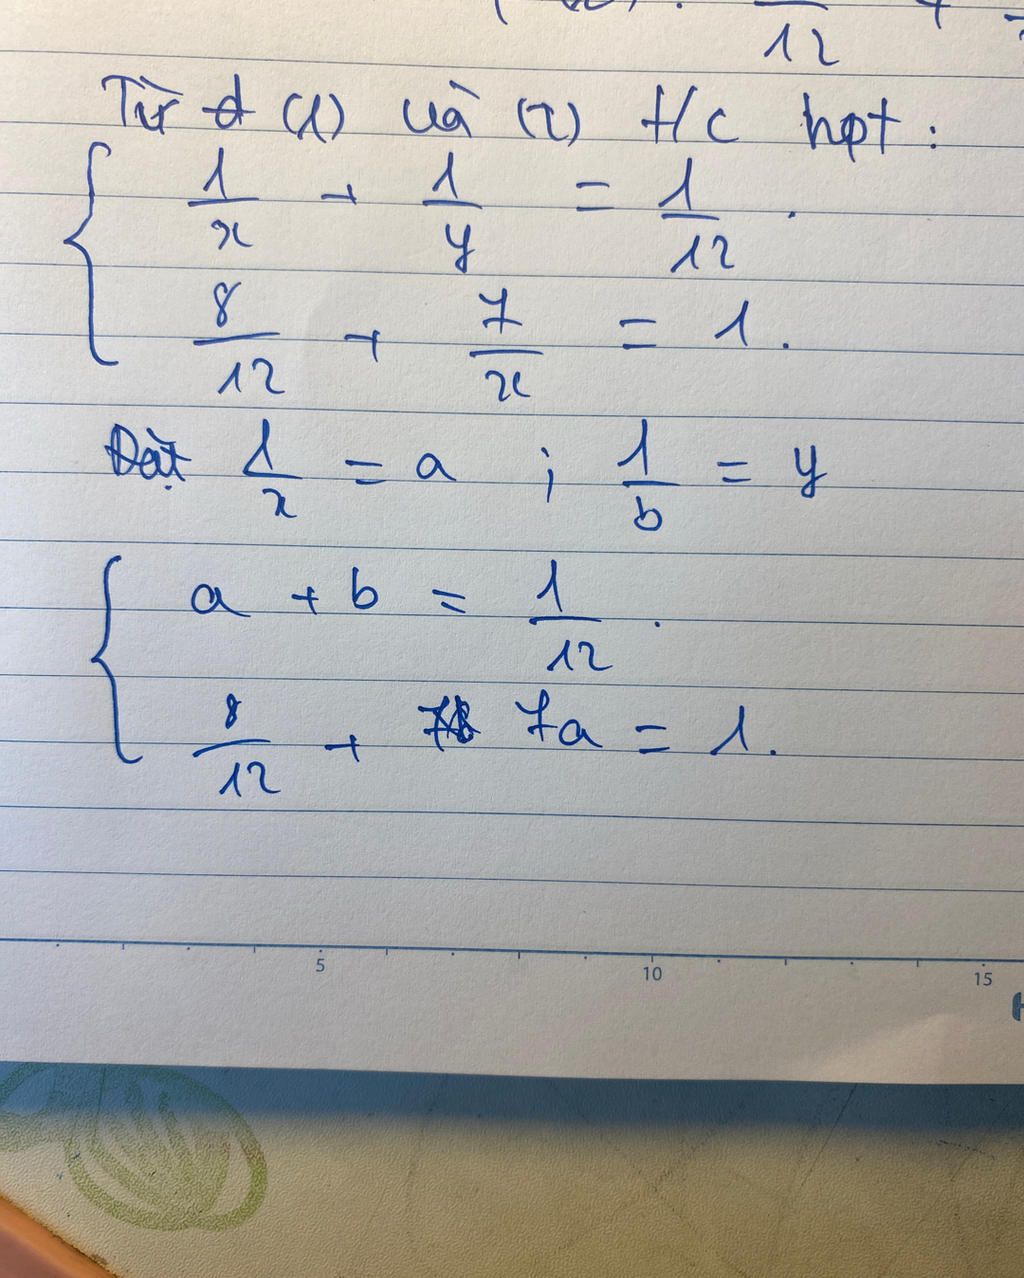 12
Từ đ (1) và (2) t/c hpt:
1/x + 1/y = 1/12.
8/12 + 7/x = 1.
Đặt 1/x = a ; 1/b = y
a + b = 1/12.
8/12 + 7a = 1.
5 10 15